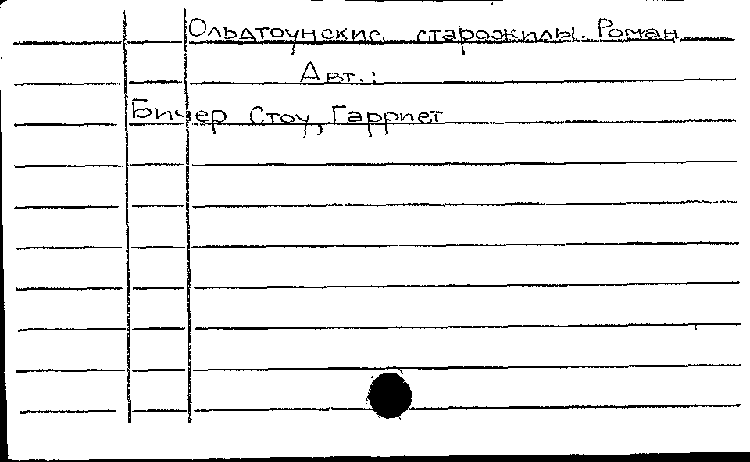 Ольдтоунские старожилы. Роман
Авт.:
Бичер Стоу, Гарриет